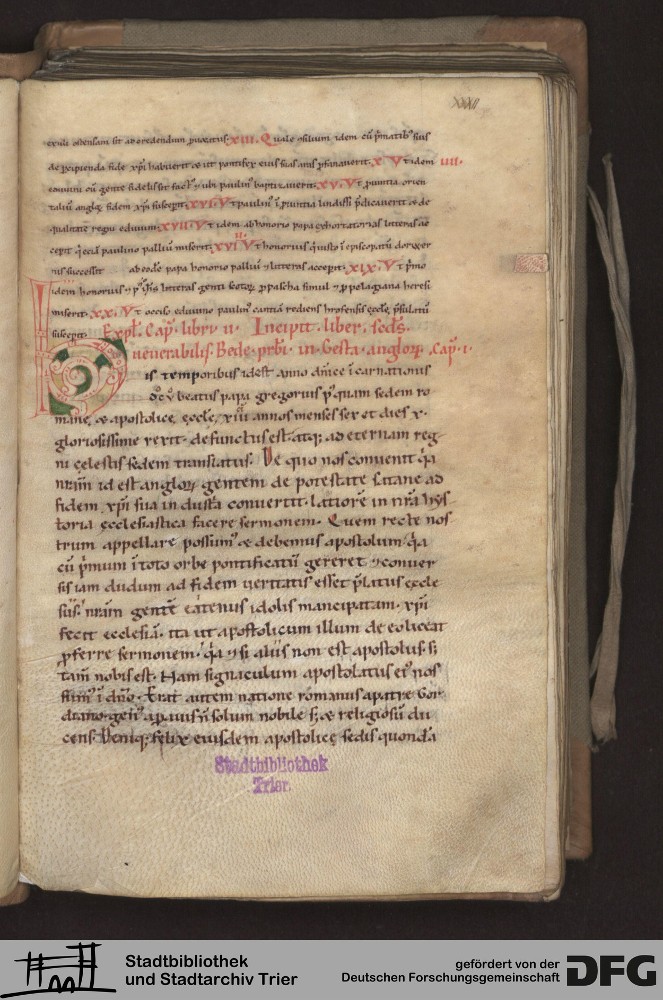 XXXII
exilii ostensam sit ad credendum puocatus. XIII. Quale ósilium idem cu pmatib; suis
de pcipienda fide xpi habuerit & ut pontifex eius suas aras pfanauerit. XV. Vt idem IIII.
eduuini cu gente fidelis sit fact' & ubi paulin' baptizauerit. XV. Vt puintia orien
taliu angloꝝ fidem xpi susceperit. XVI. Vt paulin' í puintia lindissi pdicauerit & de
qualitate regni eduuini. XVII. Vt idem ab honorio papa exhortatorias litteras ac
cepit q &iá paulino palliu miserit. XVIII. Vt honorius q iusto í episcopatu doruuer
nis successit ab eode papa honorio palliu & litteras accepit. XIX. Vt pmo
idem honorius & p' ioh̄s litteras genti scottoꝝ p pascha simul & p pelagiana heresi
miserit. XX. Vt occiso eduuino paulin' cantiá rediens hrofensis eccle psulatu
susceperit. Expl. Cap. libri II. Incipit liber secds.
uenerabilis Bede prbi in Gesta angloꝝ. Cap. I.
is temporibus id est anno dnice icarnationis
dcv beatus papa gregorius p' quam sedem ro
mane & apostolice eccle, XIII annos menses sex et dies X.
gloriosissime rexit. defunctus est. atq; ad eternam reg
ni celestis sedem translatus. De quo nos conuenit qa
nram id est angloꝝ gentem de potestate satane ad
fidem xpi sua industa conuertit. latiore in nra hys
toria ecclesiastica facere sermonem. Quem recte nos
trum appellare possum' & debemus apostolum. qa
cu pmum i toto orbe pontificatu gereret & conuer
sis iam dudum ad fidem ueritatis esset platus eccle
siis. nram gente eatenus idolis mancipatam. xpi
fecit ecclesiá. ita ut apostolicum illum de eo liceat
pferre sermonem. qa & si aliis non est apostolus. s;
tam nobis est. Nam signaculum apostolatus ei' nos
sum' i dno. Erat autem natione romanus a patre Gor
diano. gen' a pauis n solum nobile s; & religiosu du
cens. Deniq; felix eiusdem apostolice sedis quonda
Stadtbibliothek
Trier.
Stadtbibliothek
und Stadtarchiv Trier
gefördert von der
Deutschen Forschungsgemeinschaft
DFG